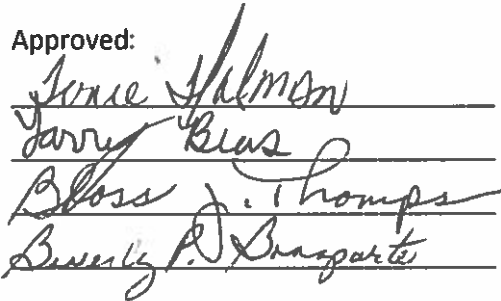 Approved:
Tonie Halmon
Larry Bias
Bloss J. Thomps
Beverly P. Bonaparte